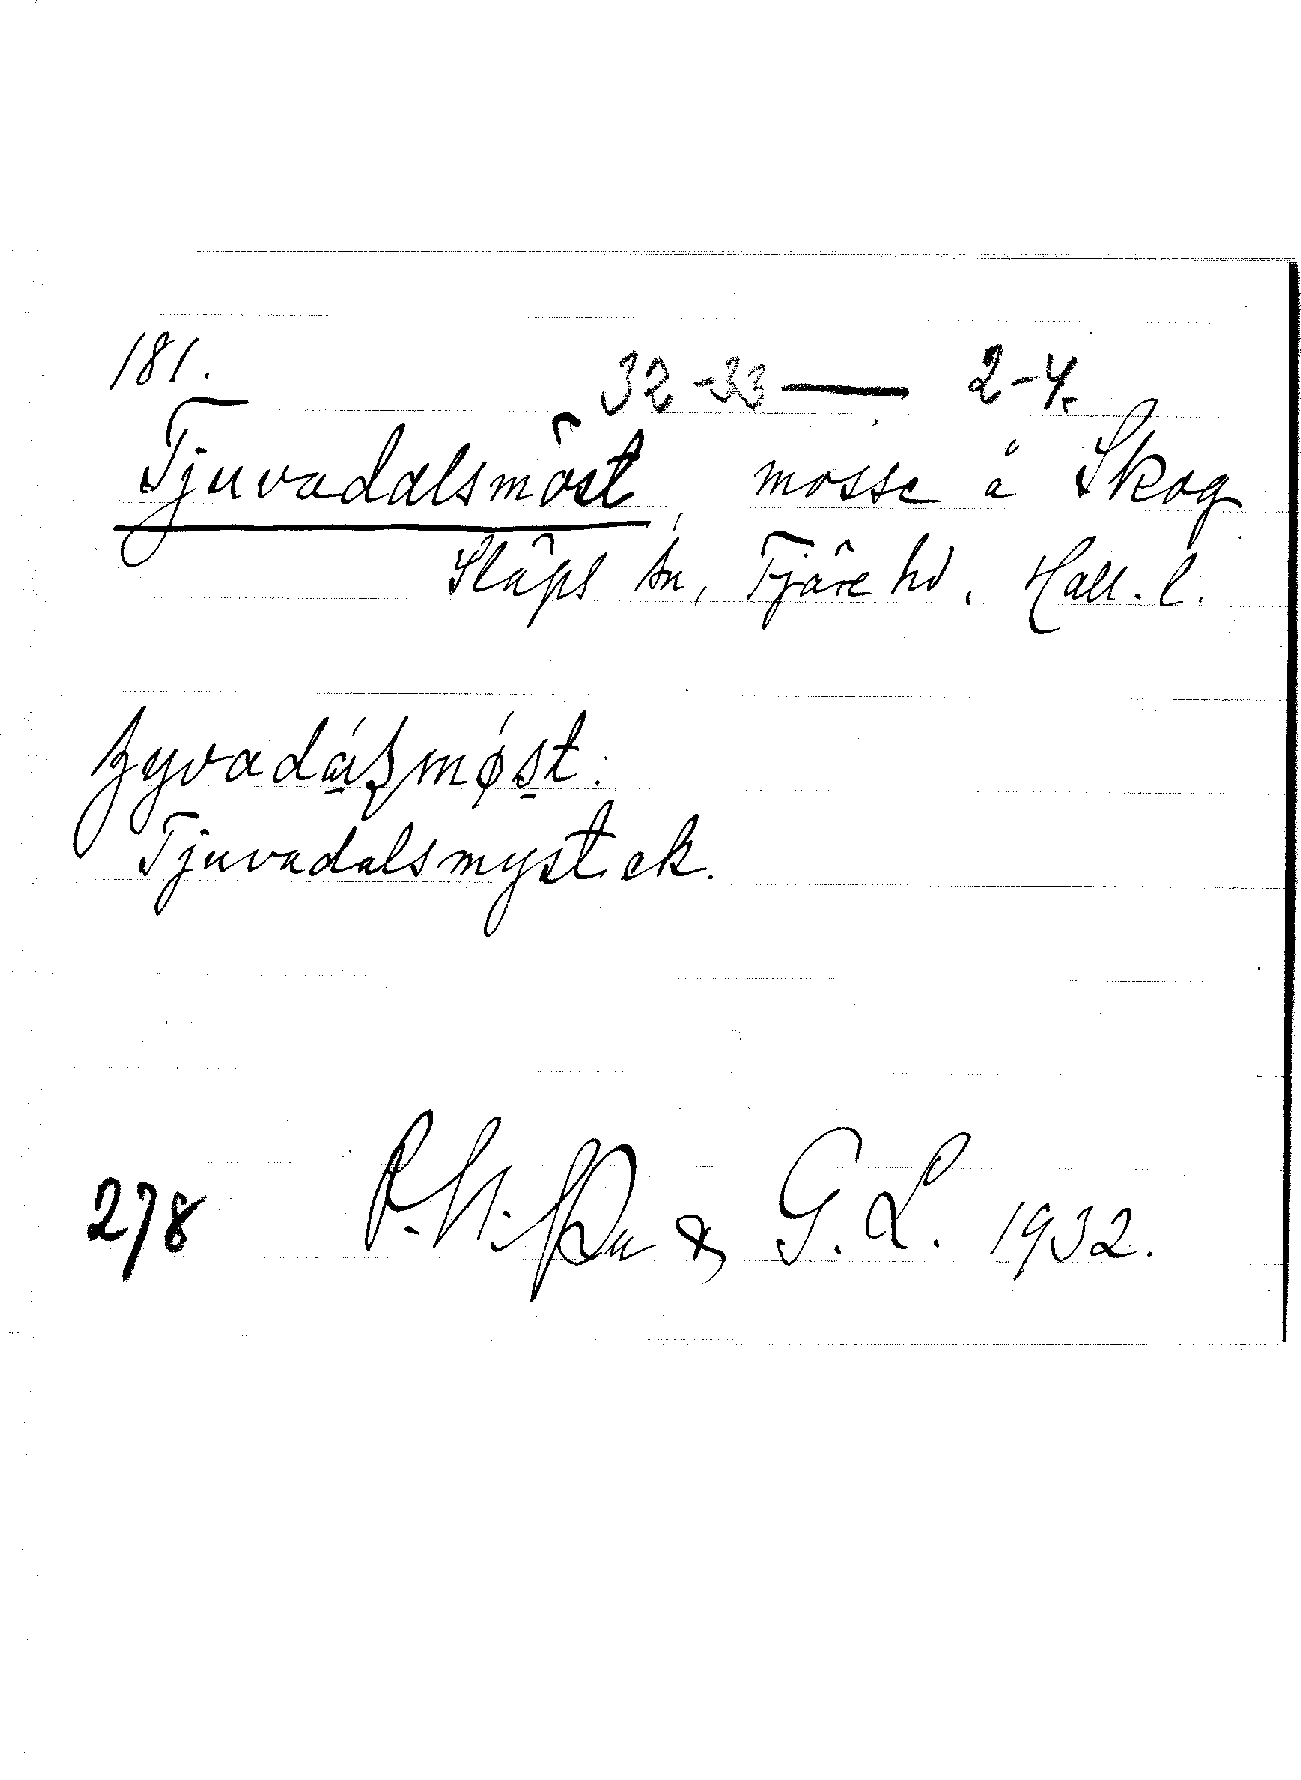 181.
32-33 — 2-4.
Tjuvadalsmöst, mosse å Skog
Släps sn, Fjäre hd, Hall. l.
Tjuvadalsmyst ek.
278 & G. L. 1932.